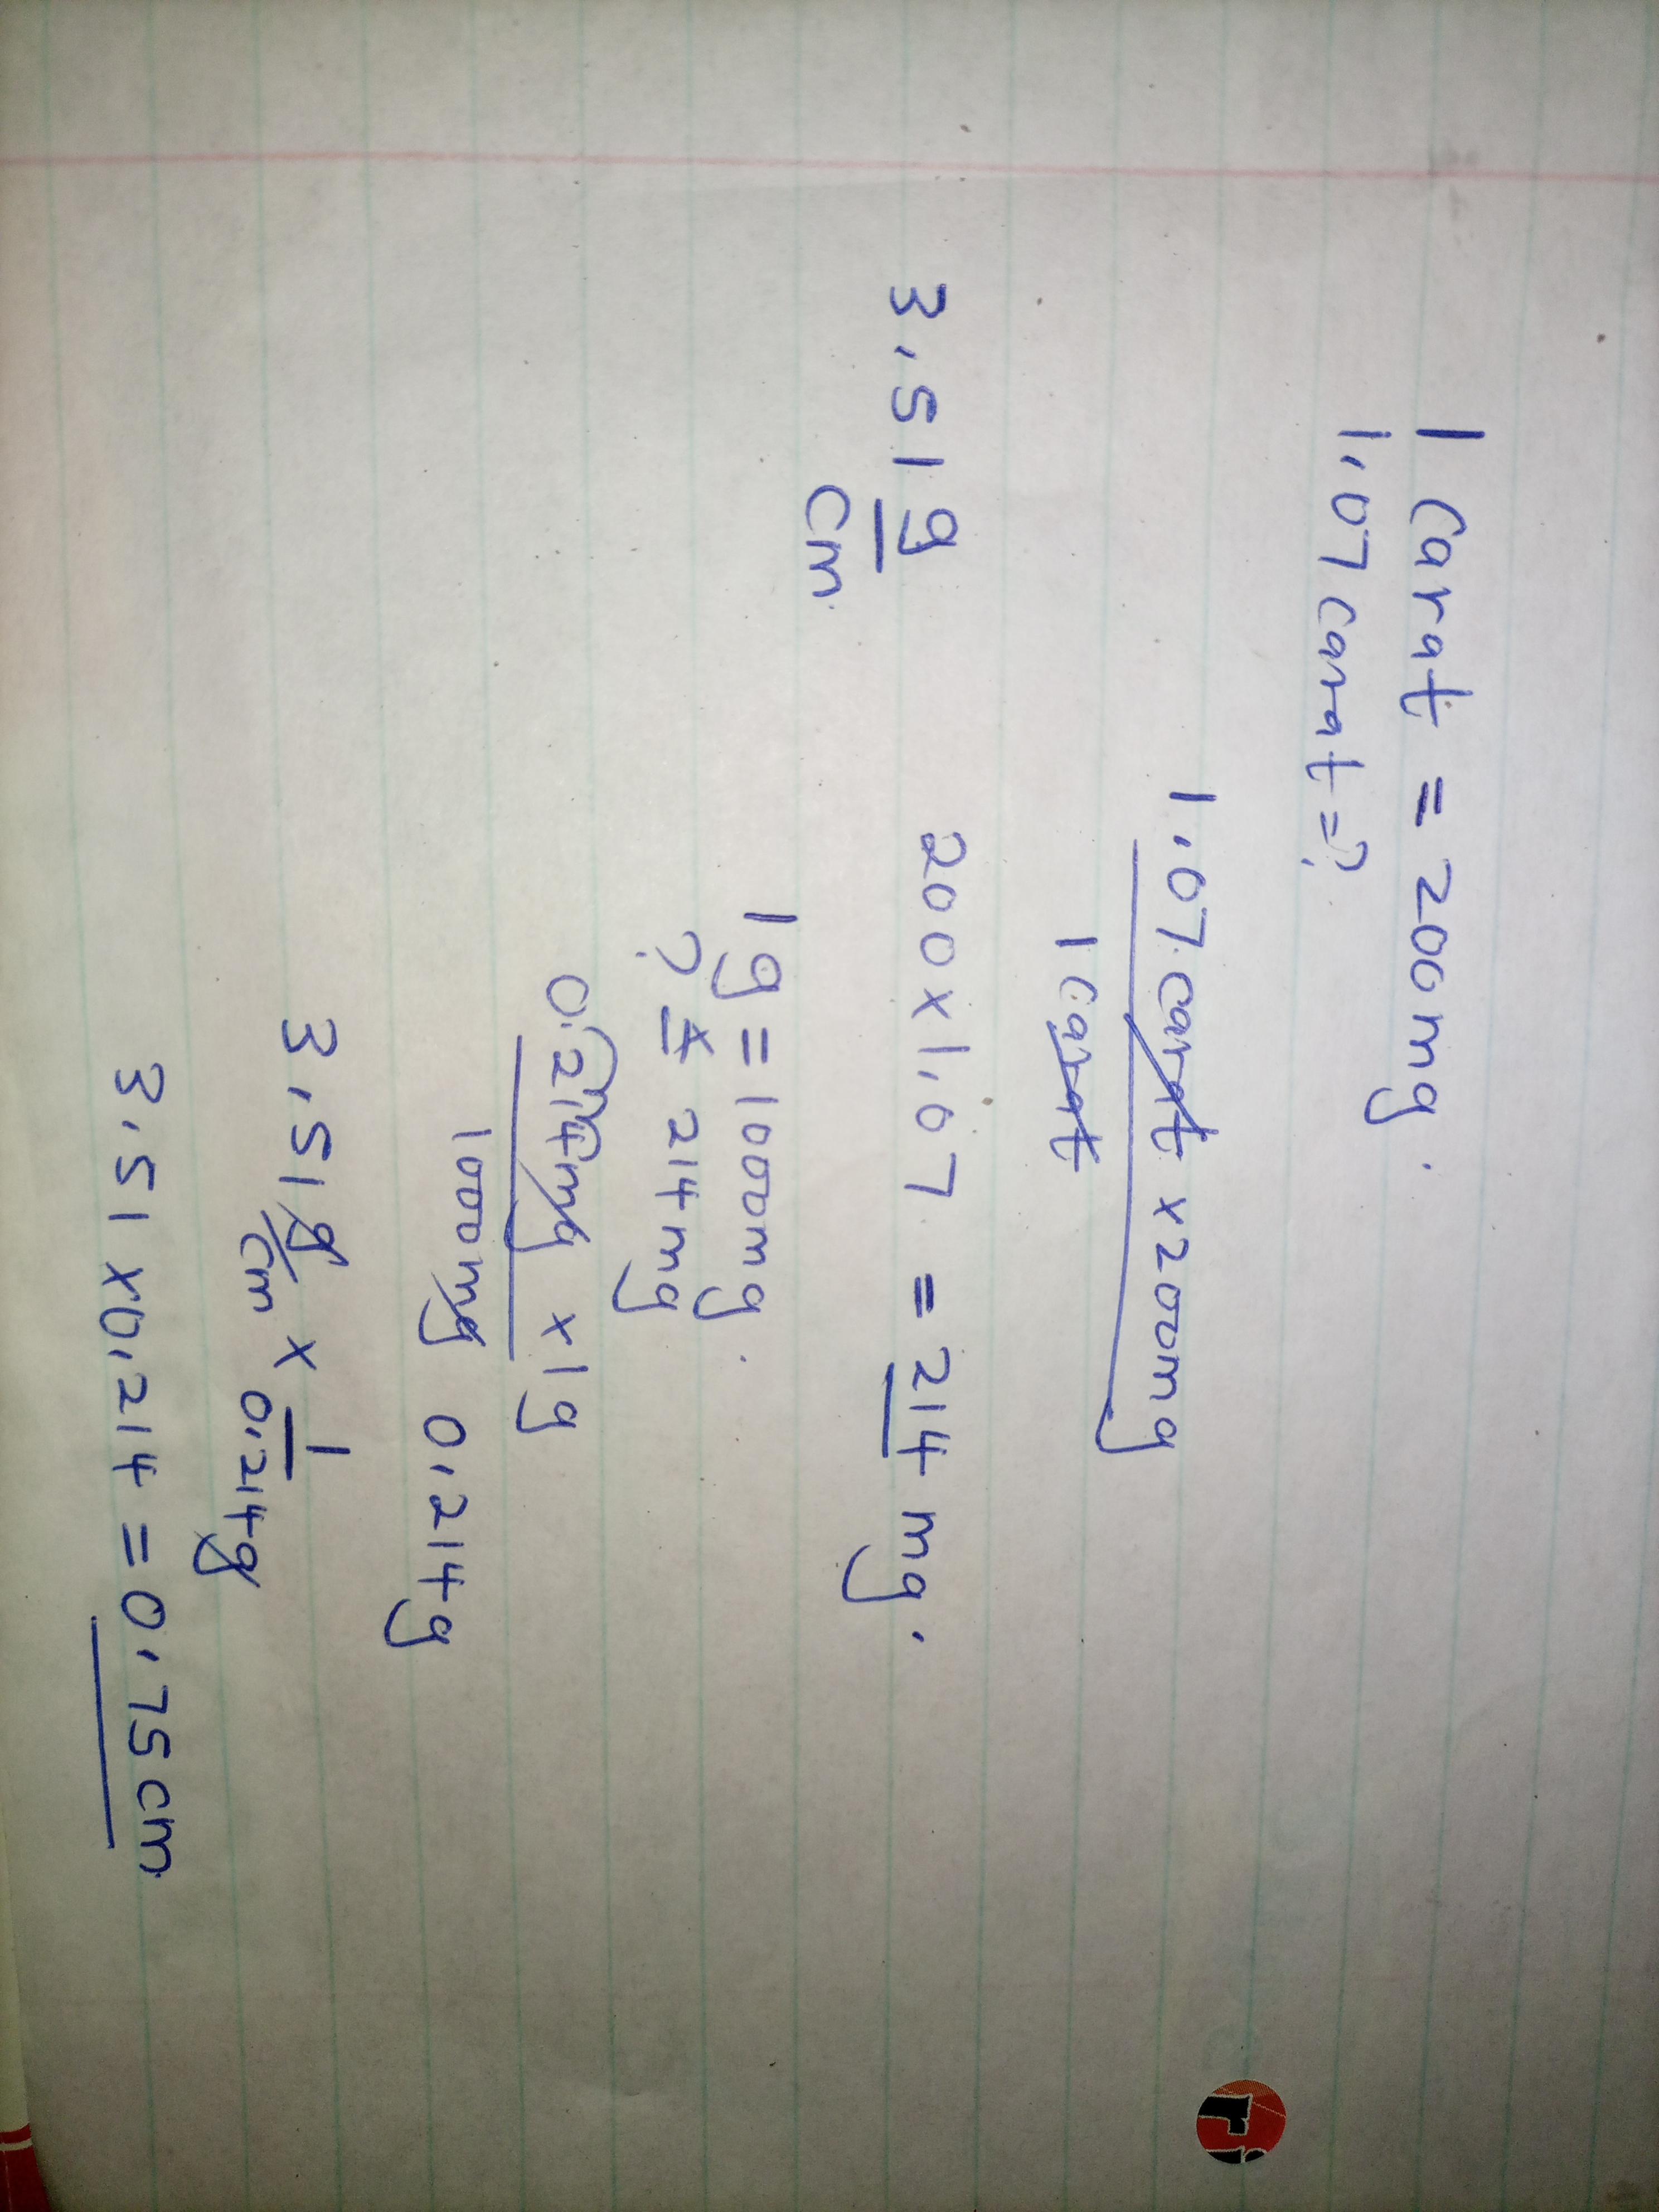 1 carat = 200mg.
1.07 carat = ?
1.07 carat x 200mg
1 carat
3.51 g
cm
200 x 1.07 = 214 mg.
1g = 1000mg.
? = 214mg
0.214mg x 1g
1000mg
0.214g
3.51 g x 1
cm 0.214g
3.51 x 0.214 = 0.75cm
ri